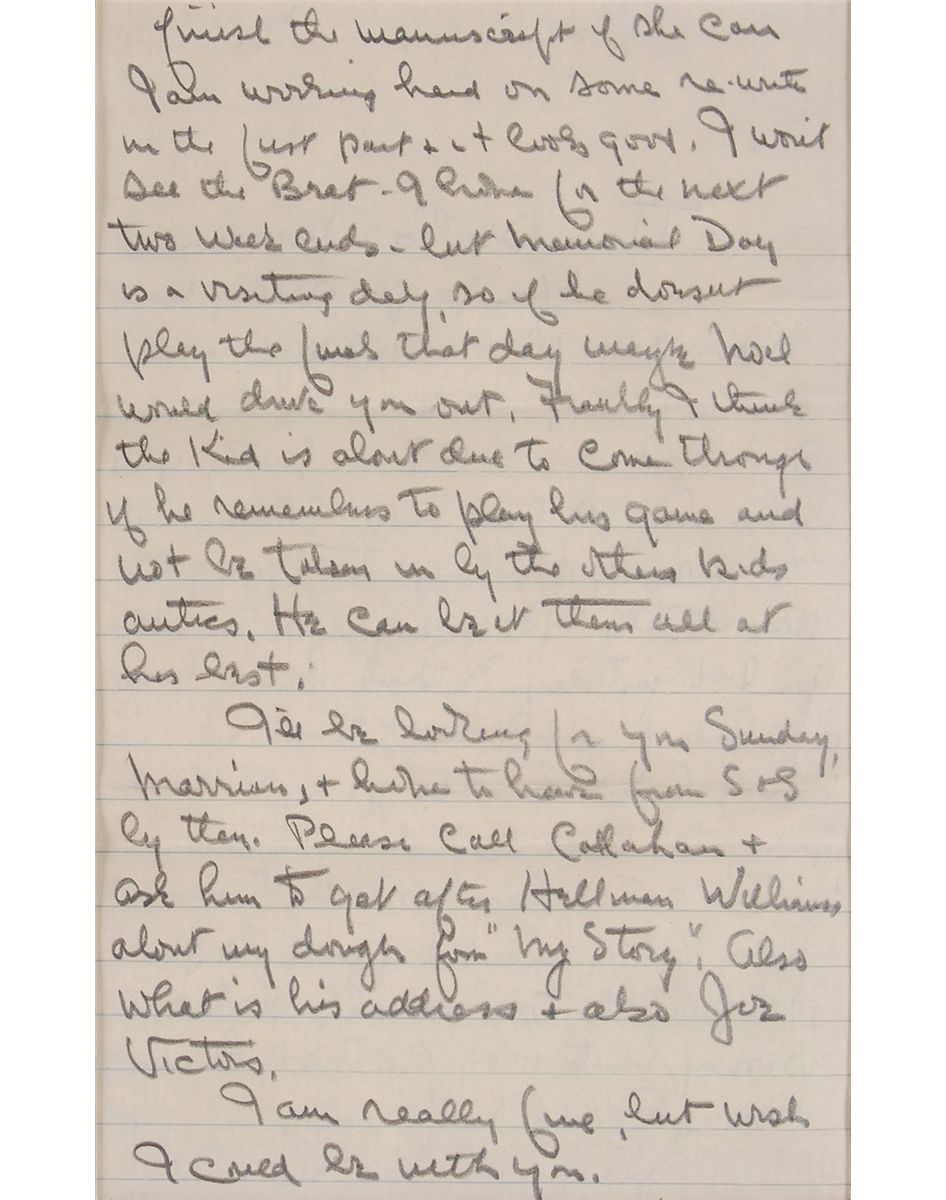 finish the manuscript if she can
I am working hard on some re-write
in the first part & it looks good. I won't
see the Brat - I hope for the next
two week ends - but Memorial Day
is a visiting day, so if he doesn't
play the finals that day maybe Noel
would drive you out. Frankly I think
the Kid is about due to come through
if he remembers to play his game and
not be taken in by the others kids
antics. He can beat them all at
his best.
I'll be looking for you Sunday,
Marrian, & hope to have from S & S
by then. Please call Callahan &
ask him to get after Hillman Williams
about my dough from "My Story". Also
what is his address & also Joe
Victors.
I am really fine, but wish
I could be with you.